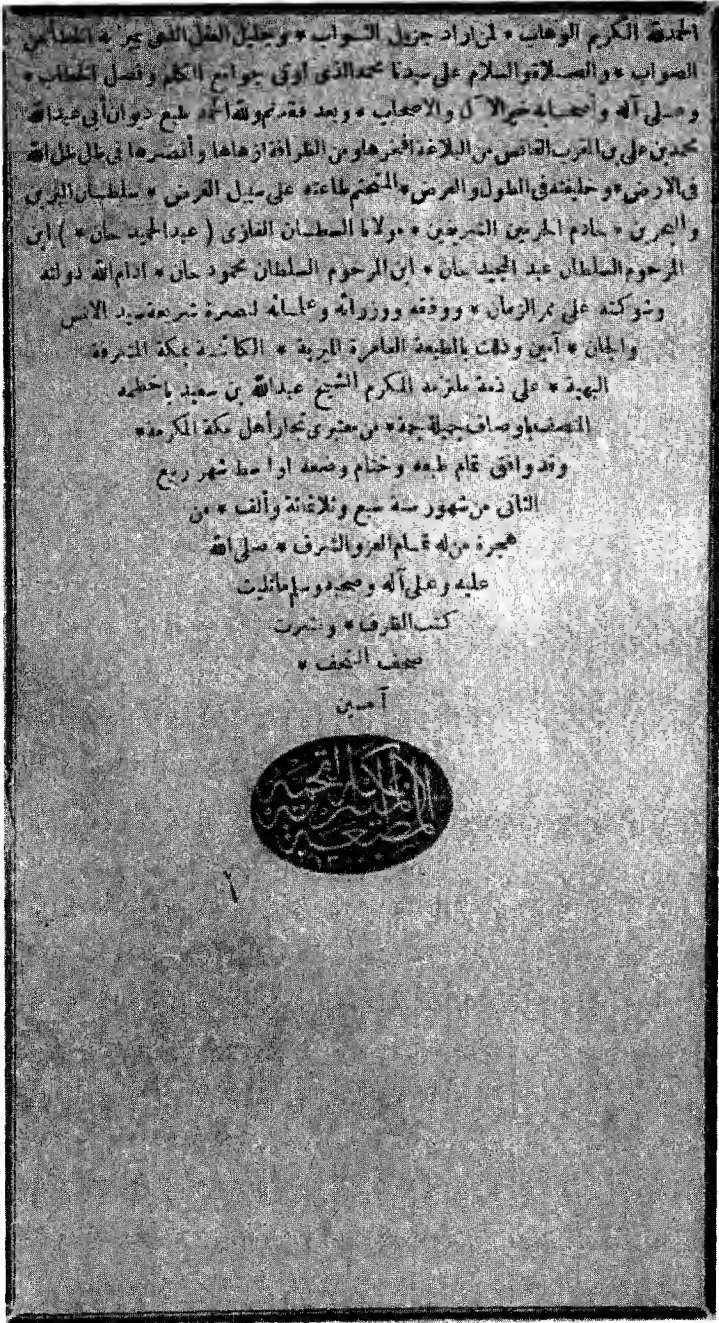 الحمدلله الكريم الوهاب * لمن اراد جزيل الثواب * وجليل العقل الذى يميز به الخطأ من
الصواب * والصلاة والسلام على سيدنا محمد الذى اوتى جوامع الكلم وفصل الخطاب *
وعلى آله وأصحابه خير الآل والاصحاب * وبعد فقد تم ولله الحمد طبع ديوان أبى عبدالله
محمد بن على بن المقرب من البلاغة افخرها ومن الظرافة ازهاها وأنضرها فى ظل ظل الله
فى الارض * وخليفته فى الطول والعرض * المتحتم طاعته على سبيل الفرض * سلطان البرين
والبحرين * خادم الحرمين الشريفين * مولانا السلطان الغازى ( عبدالحميد خان * ) ابن
المرحوم السلطان عبد المجيد خان * ابن المرحوم السلطان محمود خان * ادام الله دولته
وشوكته على ممر الزمان * ووفقه ووزرائه وعلمائه لنصرة شريعة سيد الانس
والجان * آمين وذلك بالمطبعة العامرة الميرية * الكائنة بمكة المشرفة
البهية * على ذمة ملتزمه المكرم الشيخ عبدالله بن سعيد باخطمه
المتصف باوصاف جميلة جمة * من معتبرى تجار أهل مكة المكرمة *
وقد وافق تمام طبعه وختام وضعه اواسط شهر ربيع
الثانى من شهور سنة سبع وثلاثمائة وألف * من
هجرة من له تمام العز والشرف * صلى الله
عليه وعلى آله وصحبه وسلم ما تليت
كتب الظرف * ونشرت
صحف التحف *
آمين
المطبعة الميرية
١٣٠٠